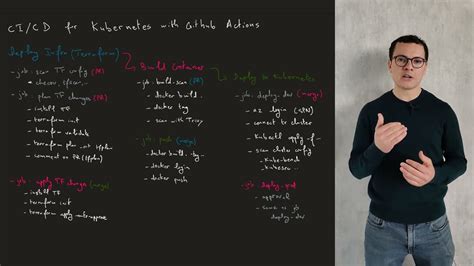 CI/CD for Kubernetes with Github Actions
Deploy Infra (Terraform)
- job: scan TF config (PR)
- checov, tfsec...
- job: plan TF changes (PR)
- install TF
- terraform init
- terraform validate
- terraform plan -out tfplan
- comment on PR (tfplan)
- job: apply TF changes (merge)
- install TF
- terraform init
- terraform apply -auto-approve
Build Container
- job: build-scan (PR)
- docker build
- docker tag
- scan with Trivy
- job: push (merge)
- docker build -tag
- docker login
- docker push
Deploy to Kubernetes
- job: deploy-dev (merge)
- az login
- connect to cluster
- Kubectl apply -f
- scan cluster config
- Kube-bench
- kubescape
- job: deploy-prod
- approval
- same as job
deploy-dev